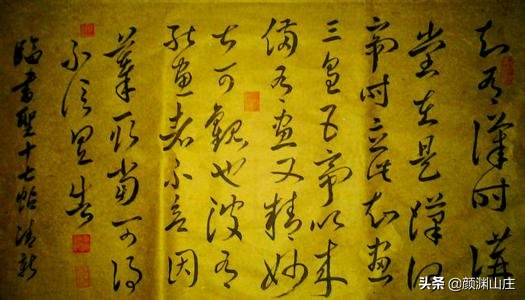 知有漢時講
堂在是漢何
帝時立此知畫
三皇五帝以來
備有畫又精妙
甚可觀也彼有
能畫者不欲因
摹取當可得
不信具告
臨書聖十七帖清新
头条 @颜渊山庄